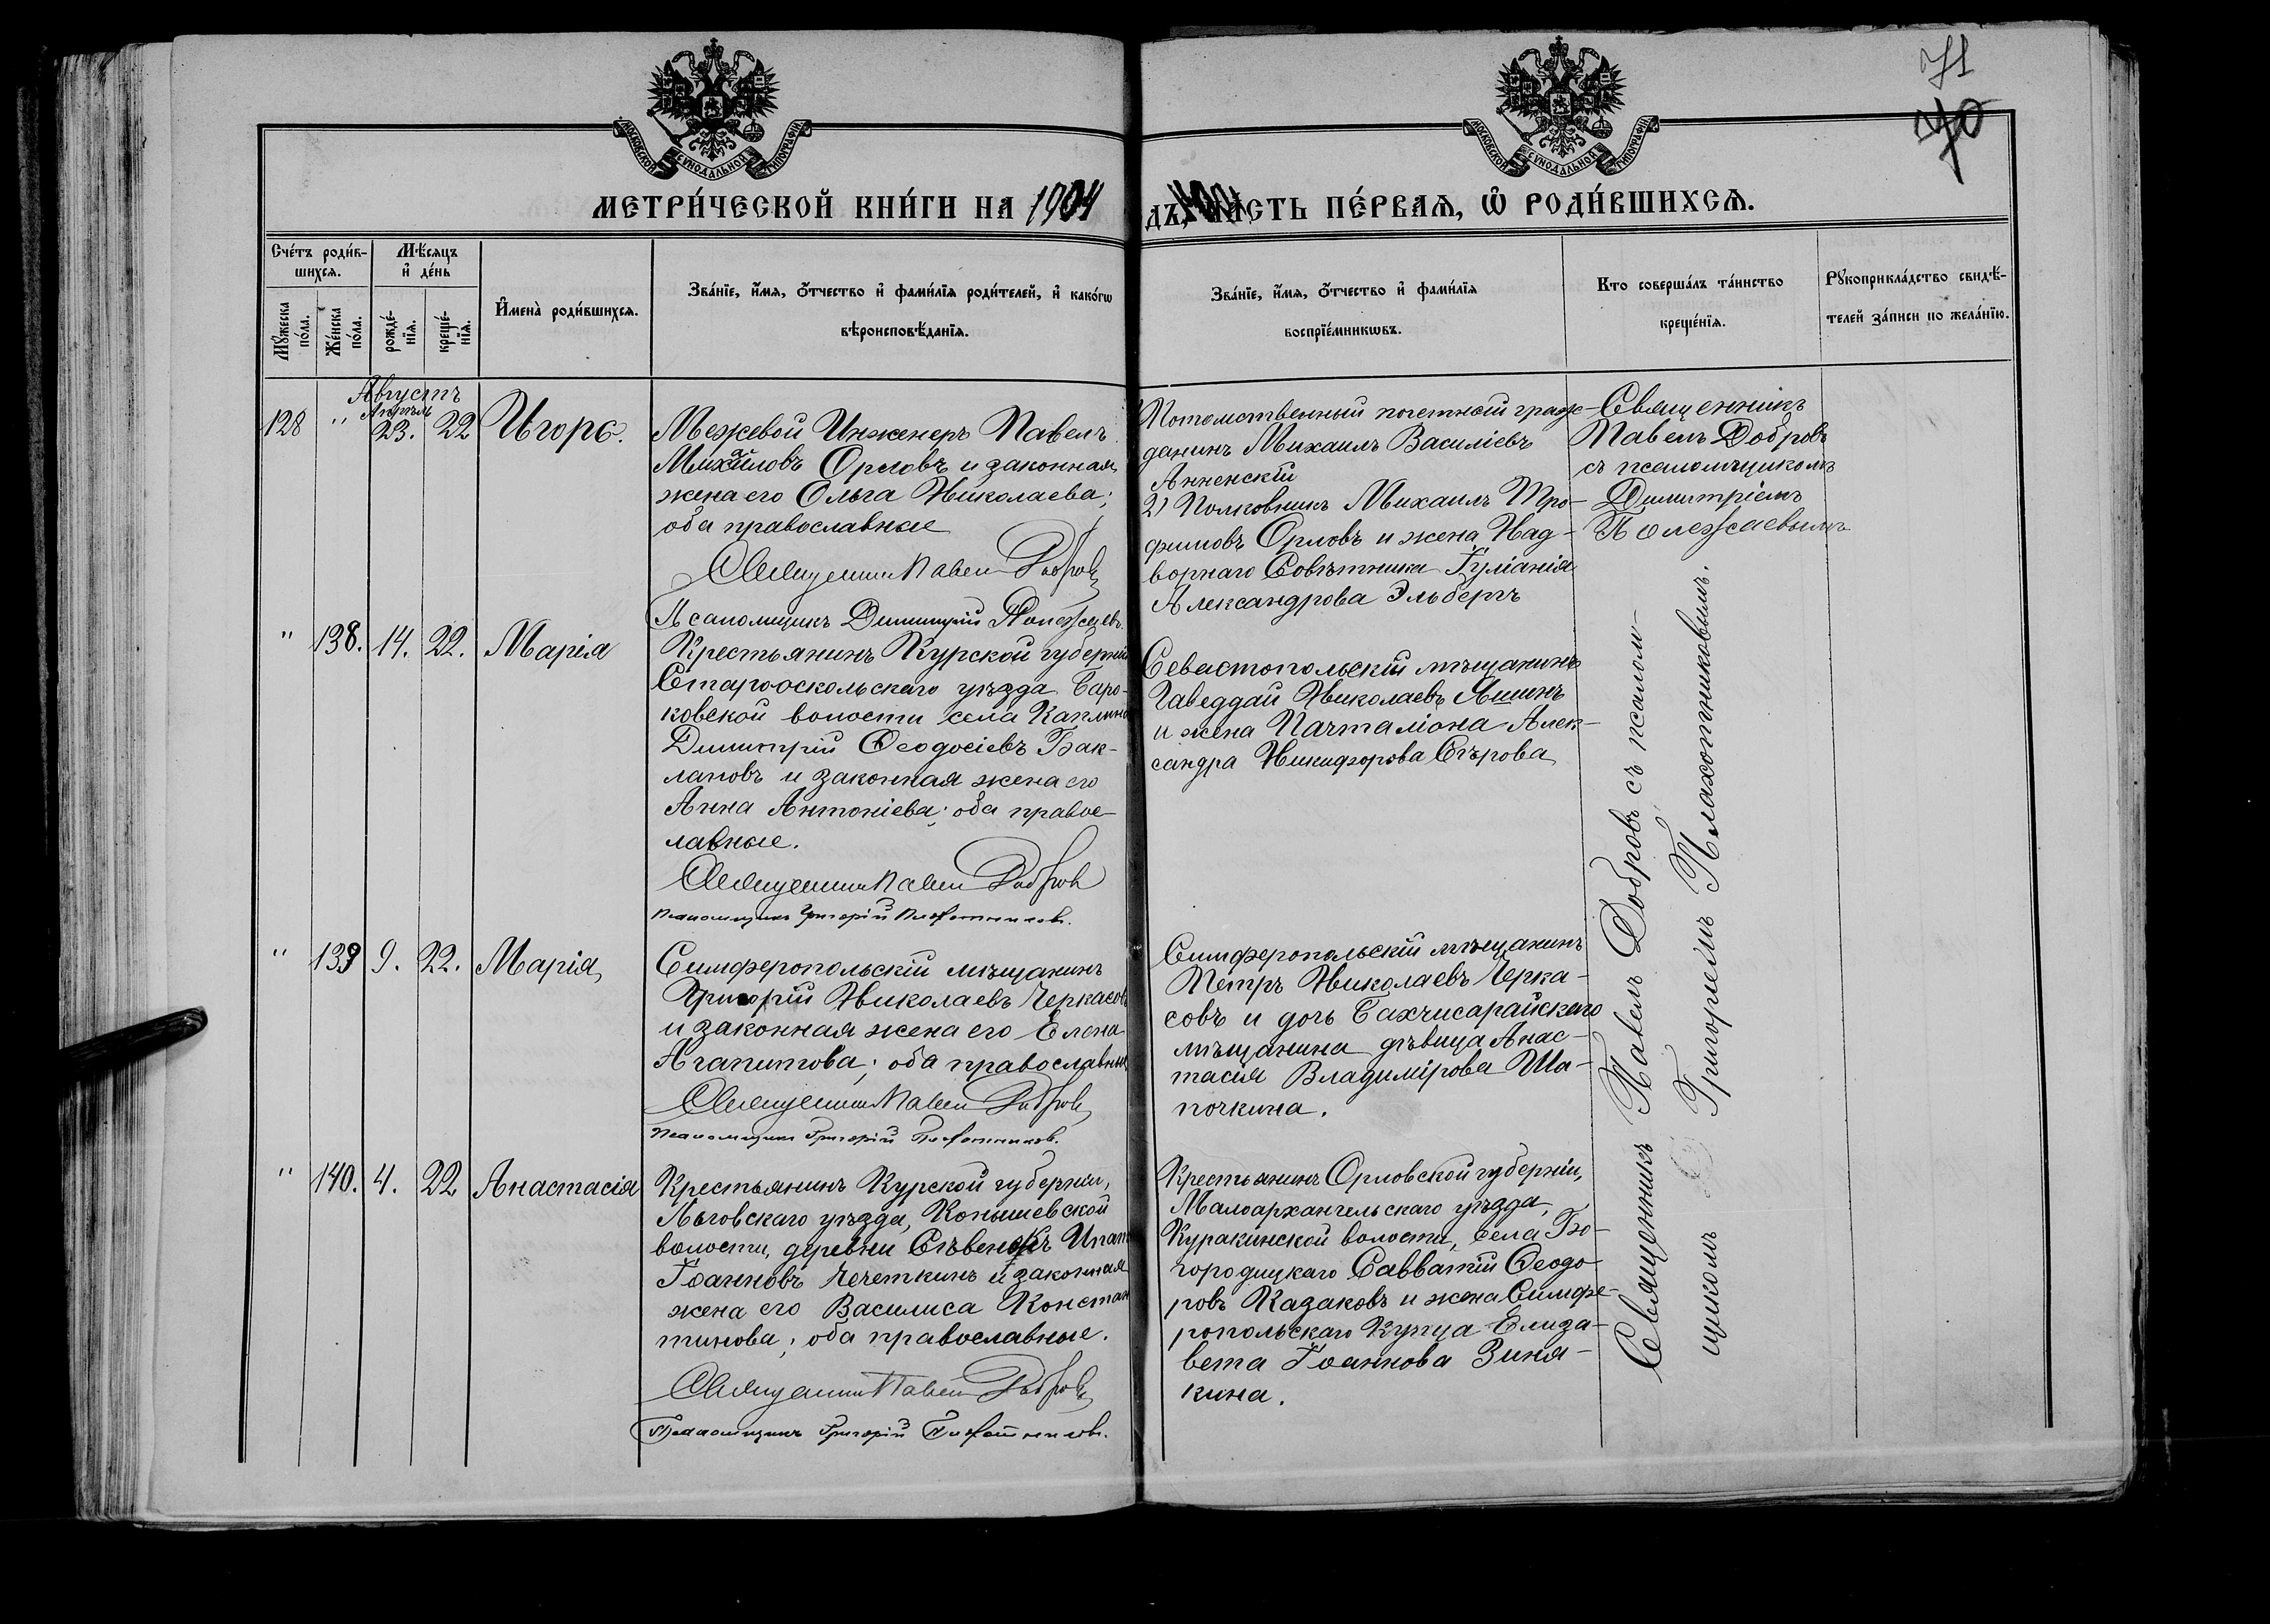 71
70
МОСКОВСКОЙ СѴНОДАЛЬНОЙ ТИПОГРАФІИ
МОСКОВСКОЙ СѴНОДАЛЬНОЙ ТИПОГРАФІИ
МЕТРИ́ЧЕСКОЙ КНИ́ГИ НА 1904
ДЪ, ЧАСТЬ ПЕ́РВАЯ, Ѡ РОДИ́ВШИХСѦ.
Сче́тъ роди́в-
шихсѧ.
Мѣ́сяцъ
и҆ де́нь
Мꙋ́жеска
по́ла.
Же́нска
по́ла.
рожде́-
нїѧ.
креще́-
нїѧ.
И҆мена̀ роди́вшихсѧ.
Зва́нїе, и҆́мѧ, ѻ҆́тчество и҆ фами́лїѧ роди́телей, и҆ како́гѡ
вѣроисповѣ́данїѧ.
Зва́нїе, и҆́мѧ, ѻ҆́тчество и҆ фами́лїѧ
воспрїе́мникѡвъ.
Кто соверша́лъ та́инство
креще́нїѧ.
Рꙋкоприкла́дство свидѣ́-
телей за́писи по жела́нїю.
Августъ
128 " Апрѣль 23. 22 Игорь.
Межевой Инженеръ Павелъ
Михайловъ Орловъ и законная
жена его Ольга Николаева;
оба православные
Священникъ Павелъ Добровъ
Псаломщикъ Димитрій Полежаевъ.
Потомственный почетный граж-
данинъ Михаилъ Василіевъ
Анненскій
2) Полковникъ Михаилъ Тро-
фимовъ Орловъ и жена Над-
ворнаго Совѣтника Іуліанія
Александрова Эльбергъ
Священникъ
Павелъ Добровъ
съ псаломщикомъ
Димитріемъ
Полежаевымъ
" 138. 14. 22. Марія
Крестьянинъ Курской губерніи
Старооскольскаго уѣзда Баро-
ковской волости села Каплина
Димитрій Ѳеодосіевъ Бак-
лановъ и законная жена его
Анна Антоніева; оба правос-
лавные.
Священникъ Павелъ Добровъ
Псаломщикъ Григорій Плахотниковъ.
Севастопольскій мѣщанинъ
Гаведдай Николаевъ Яшинъ
и жена Пачталіона Алек-
сандра Никифорова Сѣрова
" 139 9. 22. Марія
Симферопольскій мѣщанинъ
Григорій Николаевъ Черкасовъ
и законная жена его Елена
Агапитова; оба православные
Священникъ Павелъ Добровъ
Псаломщикъ Григорій Плахотниковъ.
Симферопольскій мѣщанинъ
Петръ Николаевъ Черка-
совъ и дочь Бахчисарайскаго
мѣщанина дѣвица Анас-
тасія Владимірова Ша-
почкина.
" 140. 4. 22 Анастасія
Крестьянинъ Курской губерніи,
Льговскаго уѣзда, Конышевской
волости, деревни Сѣвенокъ Ипатъ
Іоанновъ Чечеткинъ и законная
жена его Василиса Констан
тинова; оба православные.
Священникъ Павелъ Добровъ
Псаломщикъ Григорій Плахотниковъ.
Крестьянинъ Орловской губерніи,
Малоархангельскаго уѣзда,
Куракинской волости, села Бо-
городицкаго Савватій Ѳеодо-
ровъ Казаковъ и жена Симфе-
ропольскаго Купца Елиза-
вета Іоаннова Зиня-
кина.
Священникъ Павелъ Добровъ съ псалом-
щикомъ Григоріемъ Плахотниковымъ.